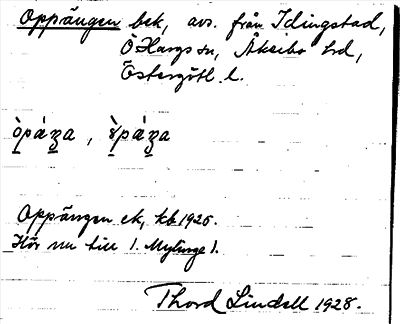 Oppängen bek, avs. från Idingstad,
Ö Hargs sn, Åkerbo hrd,
Östergötl. l.
Oppängen ek, kb 1925.
Hör nu till 1. Mylinge 1.
Thord Lindell 1928.